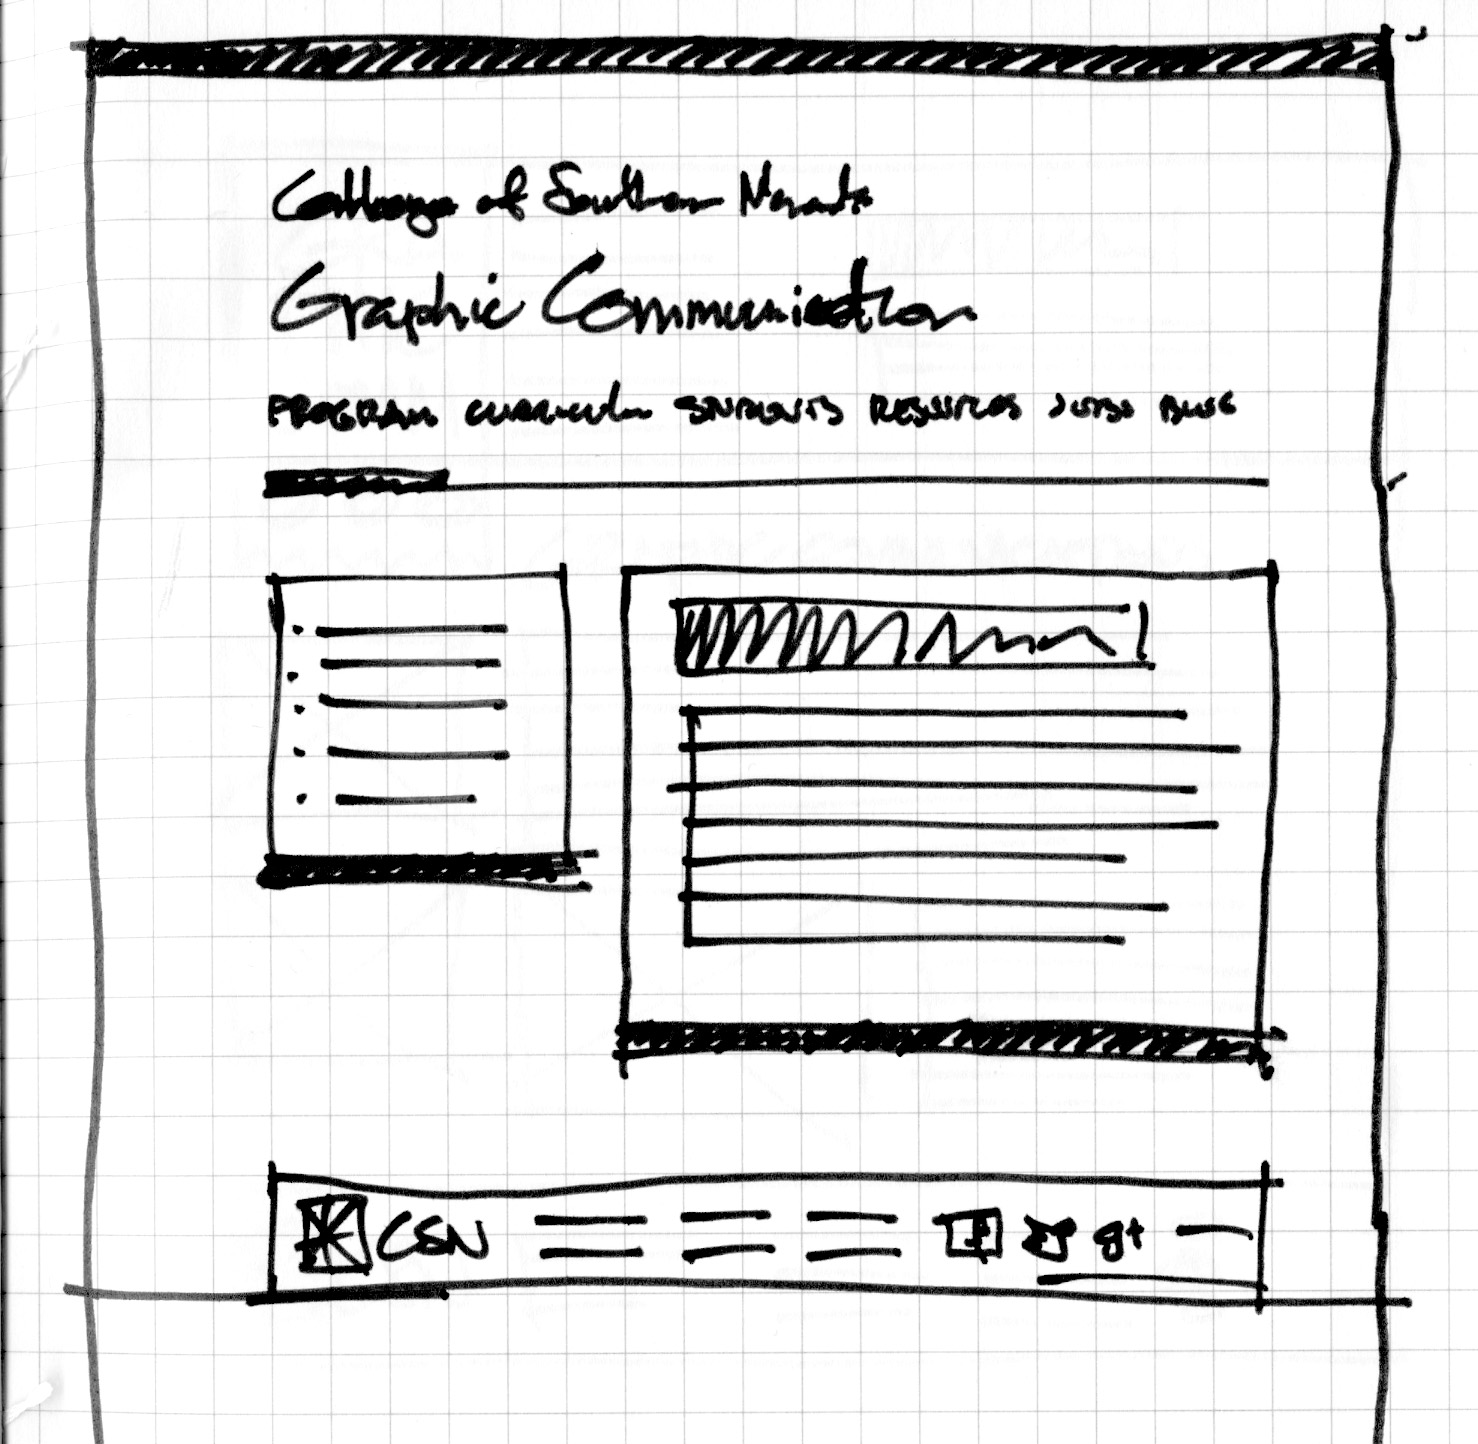 College of Southern Nevada
Graphic Communication
PROGRAM CURRICULUM STUDENTS RESOURCES JOBS BLOG
CSN g+